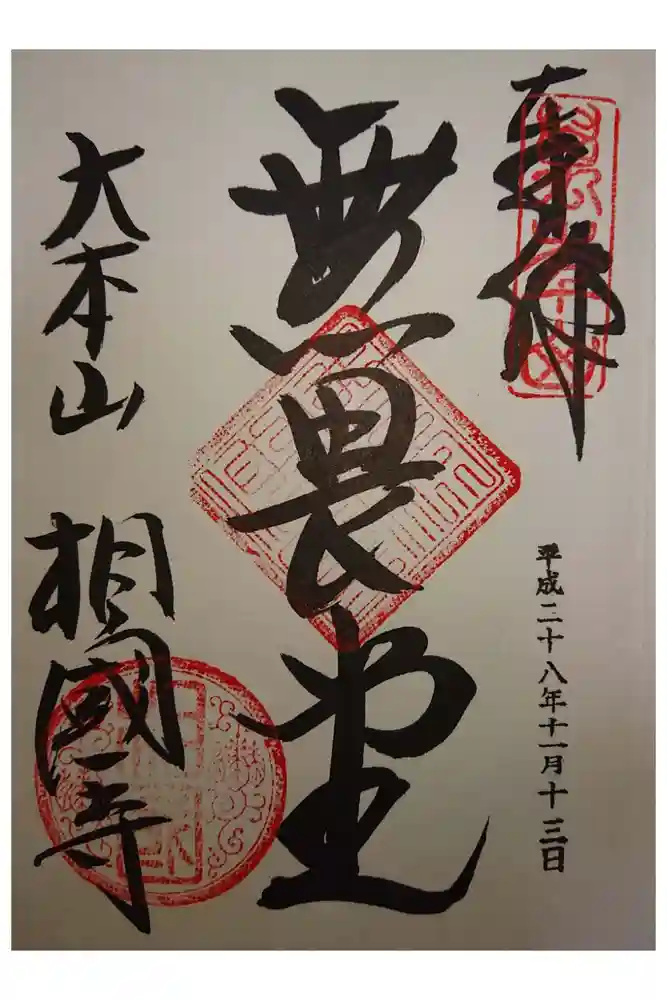 奉拝
平成二十八年十一月十三日
無畏堂
大本山
相國寺